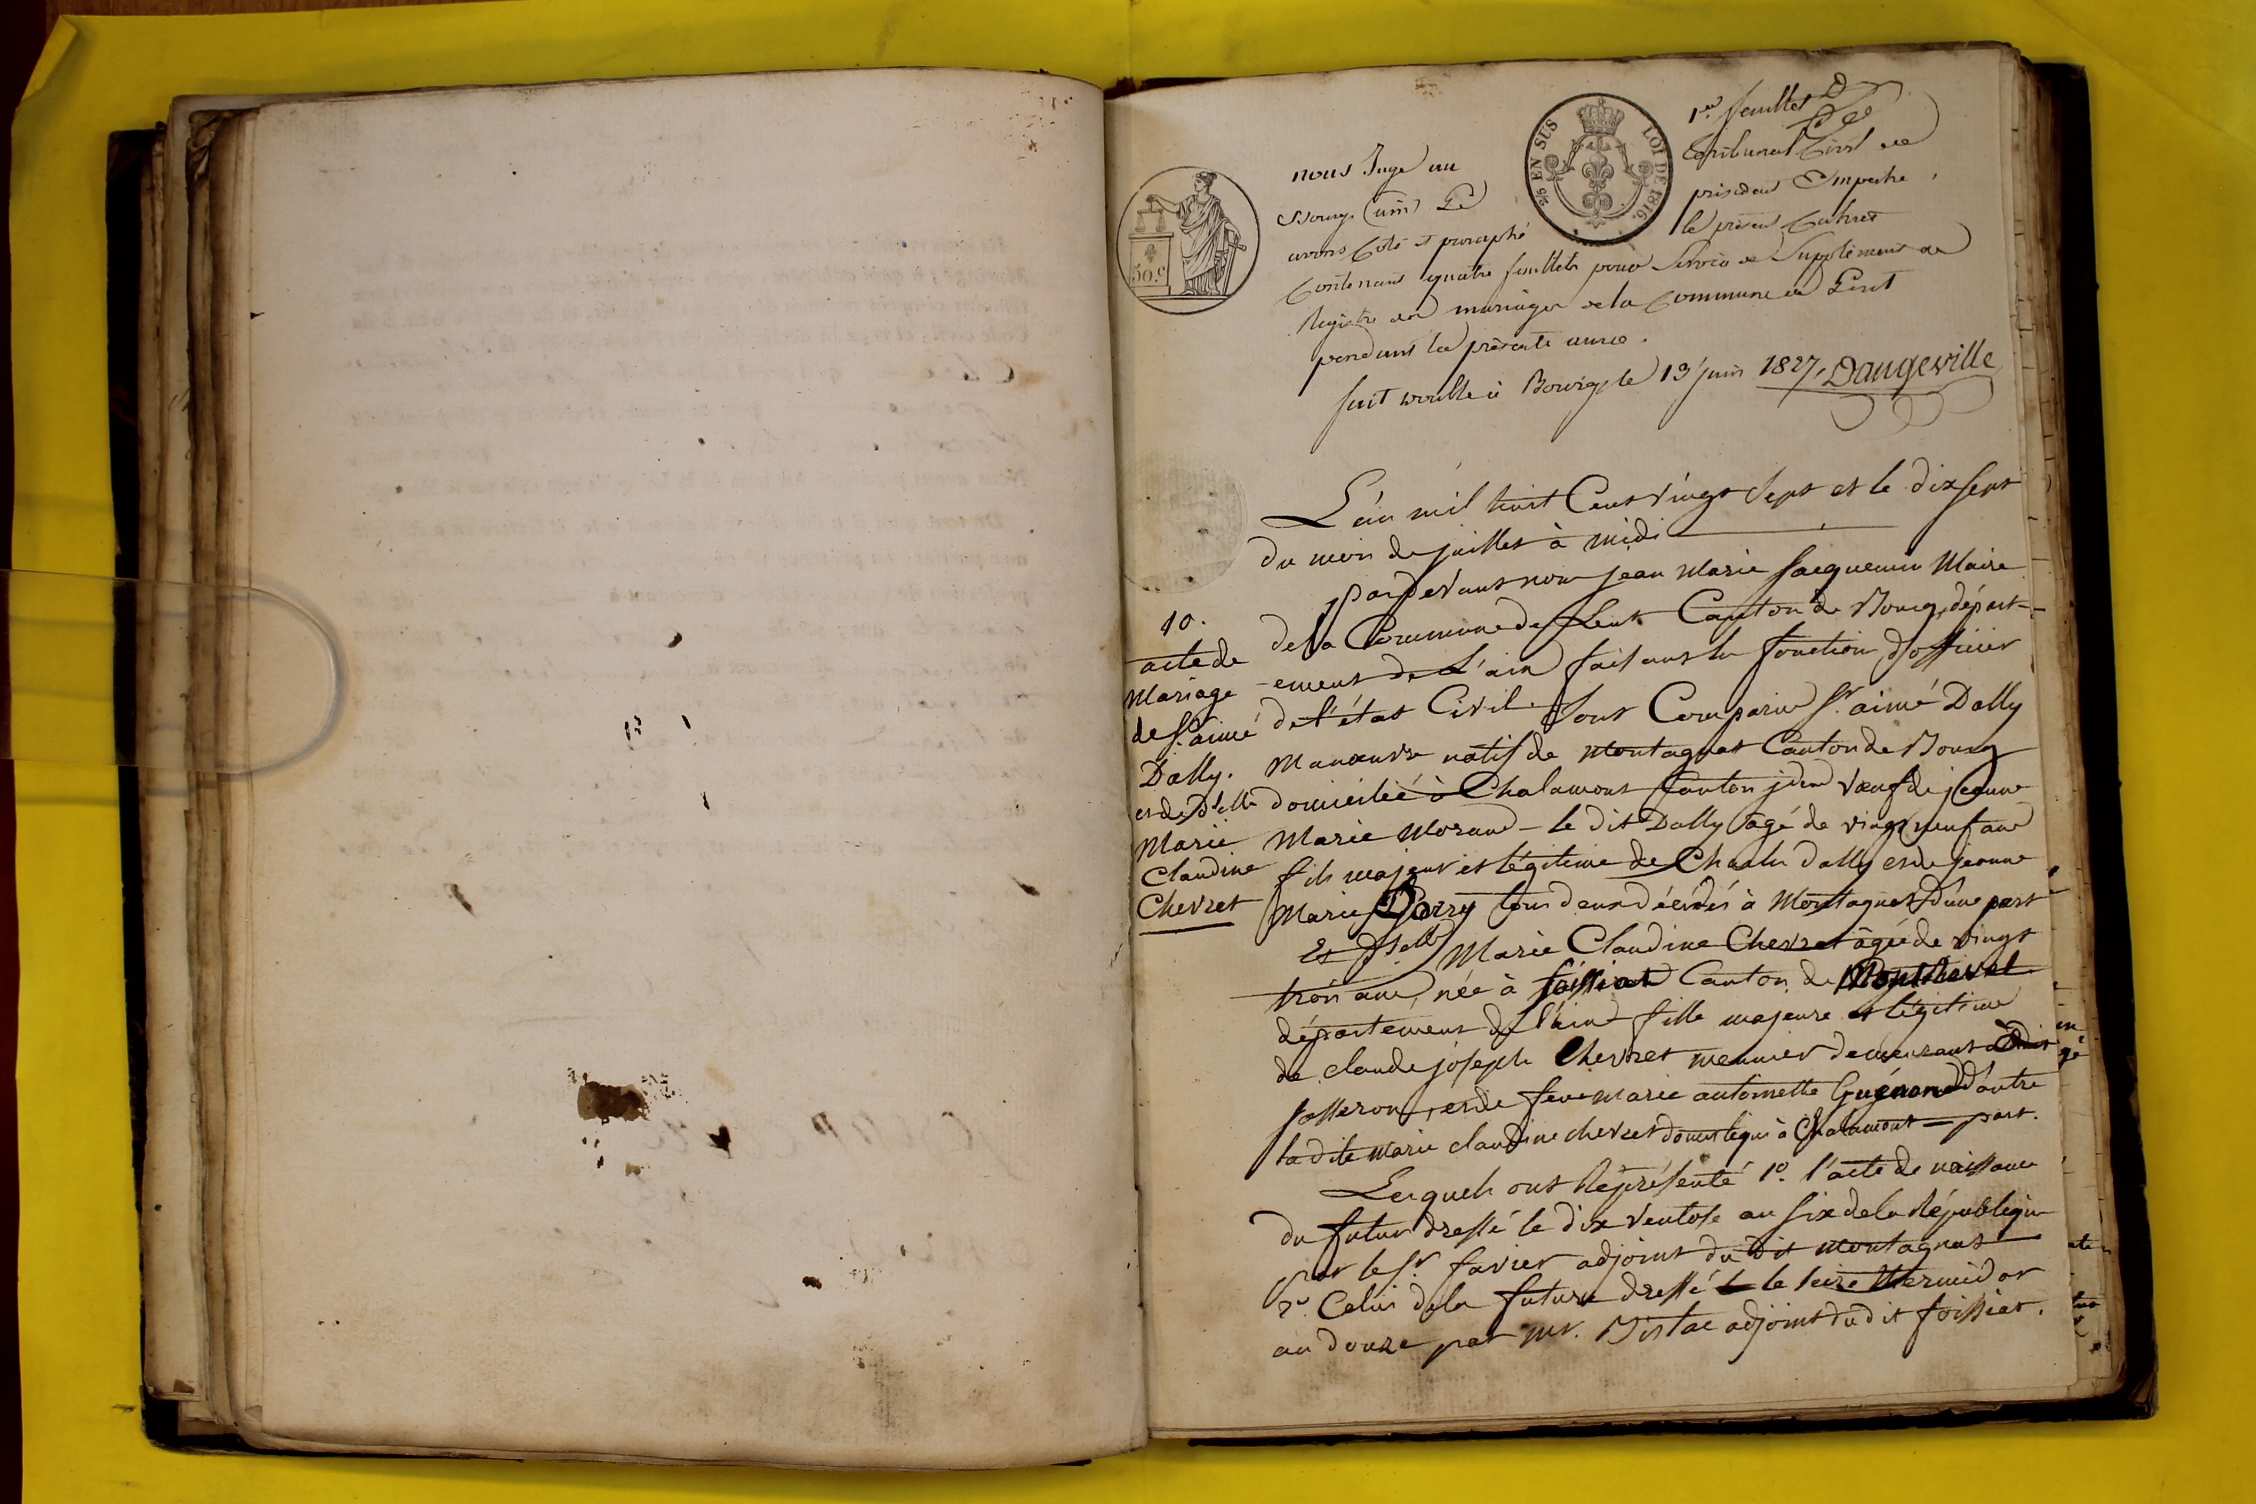 1er feuillet
nous Juge au tribunal Civil de
Bourg (ain) Le président Empeché,
avons Coté et paraphé le présent Cahier
Contenant quatre feuillets pour Servir de Supplément au
Registre des mariages de la Commune de Lent
pendant la présente année.
fait double à Bourg, le 13 juin 1827, Dangeville
50.c
2/5 EN SUS
LOI DE 1816.
L'an mil huit Cent vingt Sept et le dix sept
du mois de juillet à midi
pardevant nous jean Marie jacquemin Maire
de la Commune de Lent Canton de Bourg, départ-
-ement de L'ain faisant la fonction d'officier
de l'état Civil. Sont Comparu Sr. aimé Dally
Manœuvre natif de Montagnat Canton de Bourg
domicilié à Chalamont Canton idem vœuf de jeanne
Marie Morand - le dit Dally âgé de vingt neuf ans
fils majeur et légitime de Charles Dally et de jeanne
Marie tous deux décédés à Montagnat d'une part
Et Dselle Marie Claudine Chevret âgée de vingt
trois ans, née à foissiat Canton de Montrevel
département de l'ain fille majeure et légitime
de claude joseph Chevret meunier demeurant à
josseron, et de feue Marie antoinette Guénard d'autre
la dite Marie claudine chevret domestique à Chalamont - part.
Lesquels ont Représenté 1o. l'acte de naissance
du futur dressé le dix ventose an six de la République
par le Sr. favier adjoint du dit Montagnat
2o Celui de la future dressé le seize thermidor
an douze par Mr. adjoint du dit foissiat.
10.
acte de
Mariage
de Sr. aimé
Dally.
et de Dselle
Marie
Claudine
Chevret